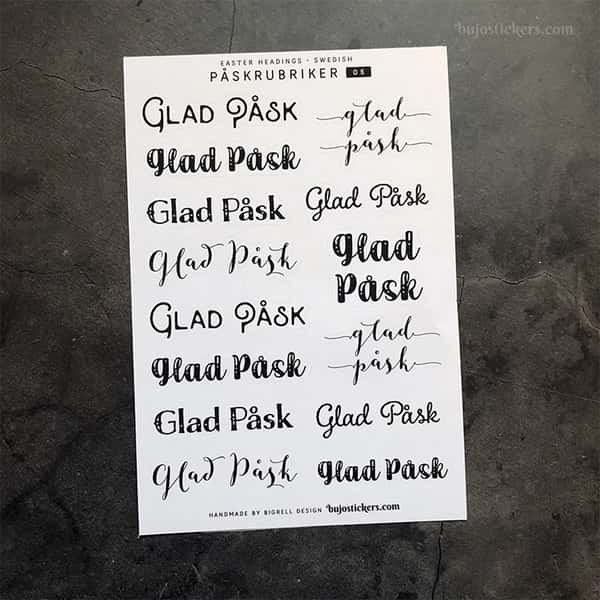 bujostickers.com
EASTER HEADINGS - SWEDISH
PÅSKRUBRIKER 05
GLAD PÅSK
Glad Påsk
Glad Påsk
Glad Påsk
GLAD PÅSK
Glad Påsk
Glad Påsk
Glad Påsk
glad
påsk
Glad Påsk
Glad
Påsk
glad
påsk
Glad Påsk
Glad Påsk
HANDMADE BY BIGRELL DESIGN bujostickers.com